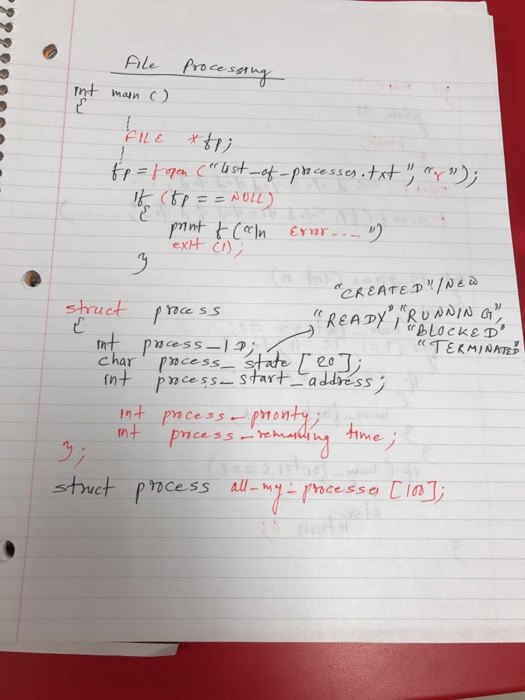 File Processing
int main ()
{
FILE *fp;
fp = fopen ("list_of_processes.txt", "r");
if (fp == NULL)
{
printf ("\n Error ....")
exit (1);
}
"CREATED"/NEW
"READY", "RUNNING",
"BLOCKED"
"TERMINATED
struct process
{
int process_ID;
char process_state [20];
int process_start_address;
int process_priority;
int process_remaining time;
};
struct process all_my_processes [100];